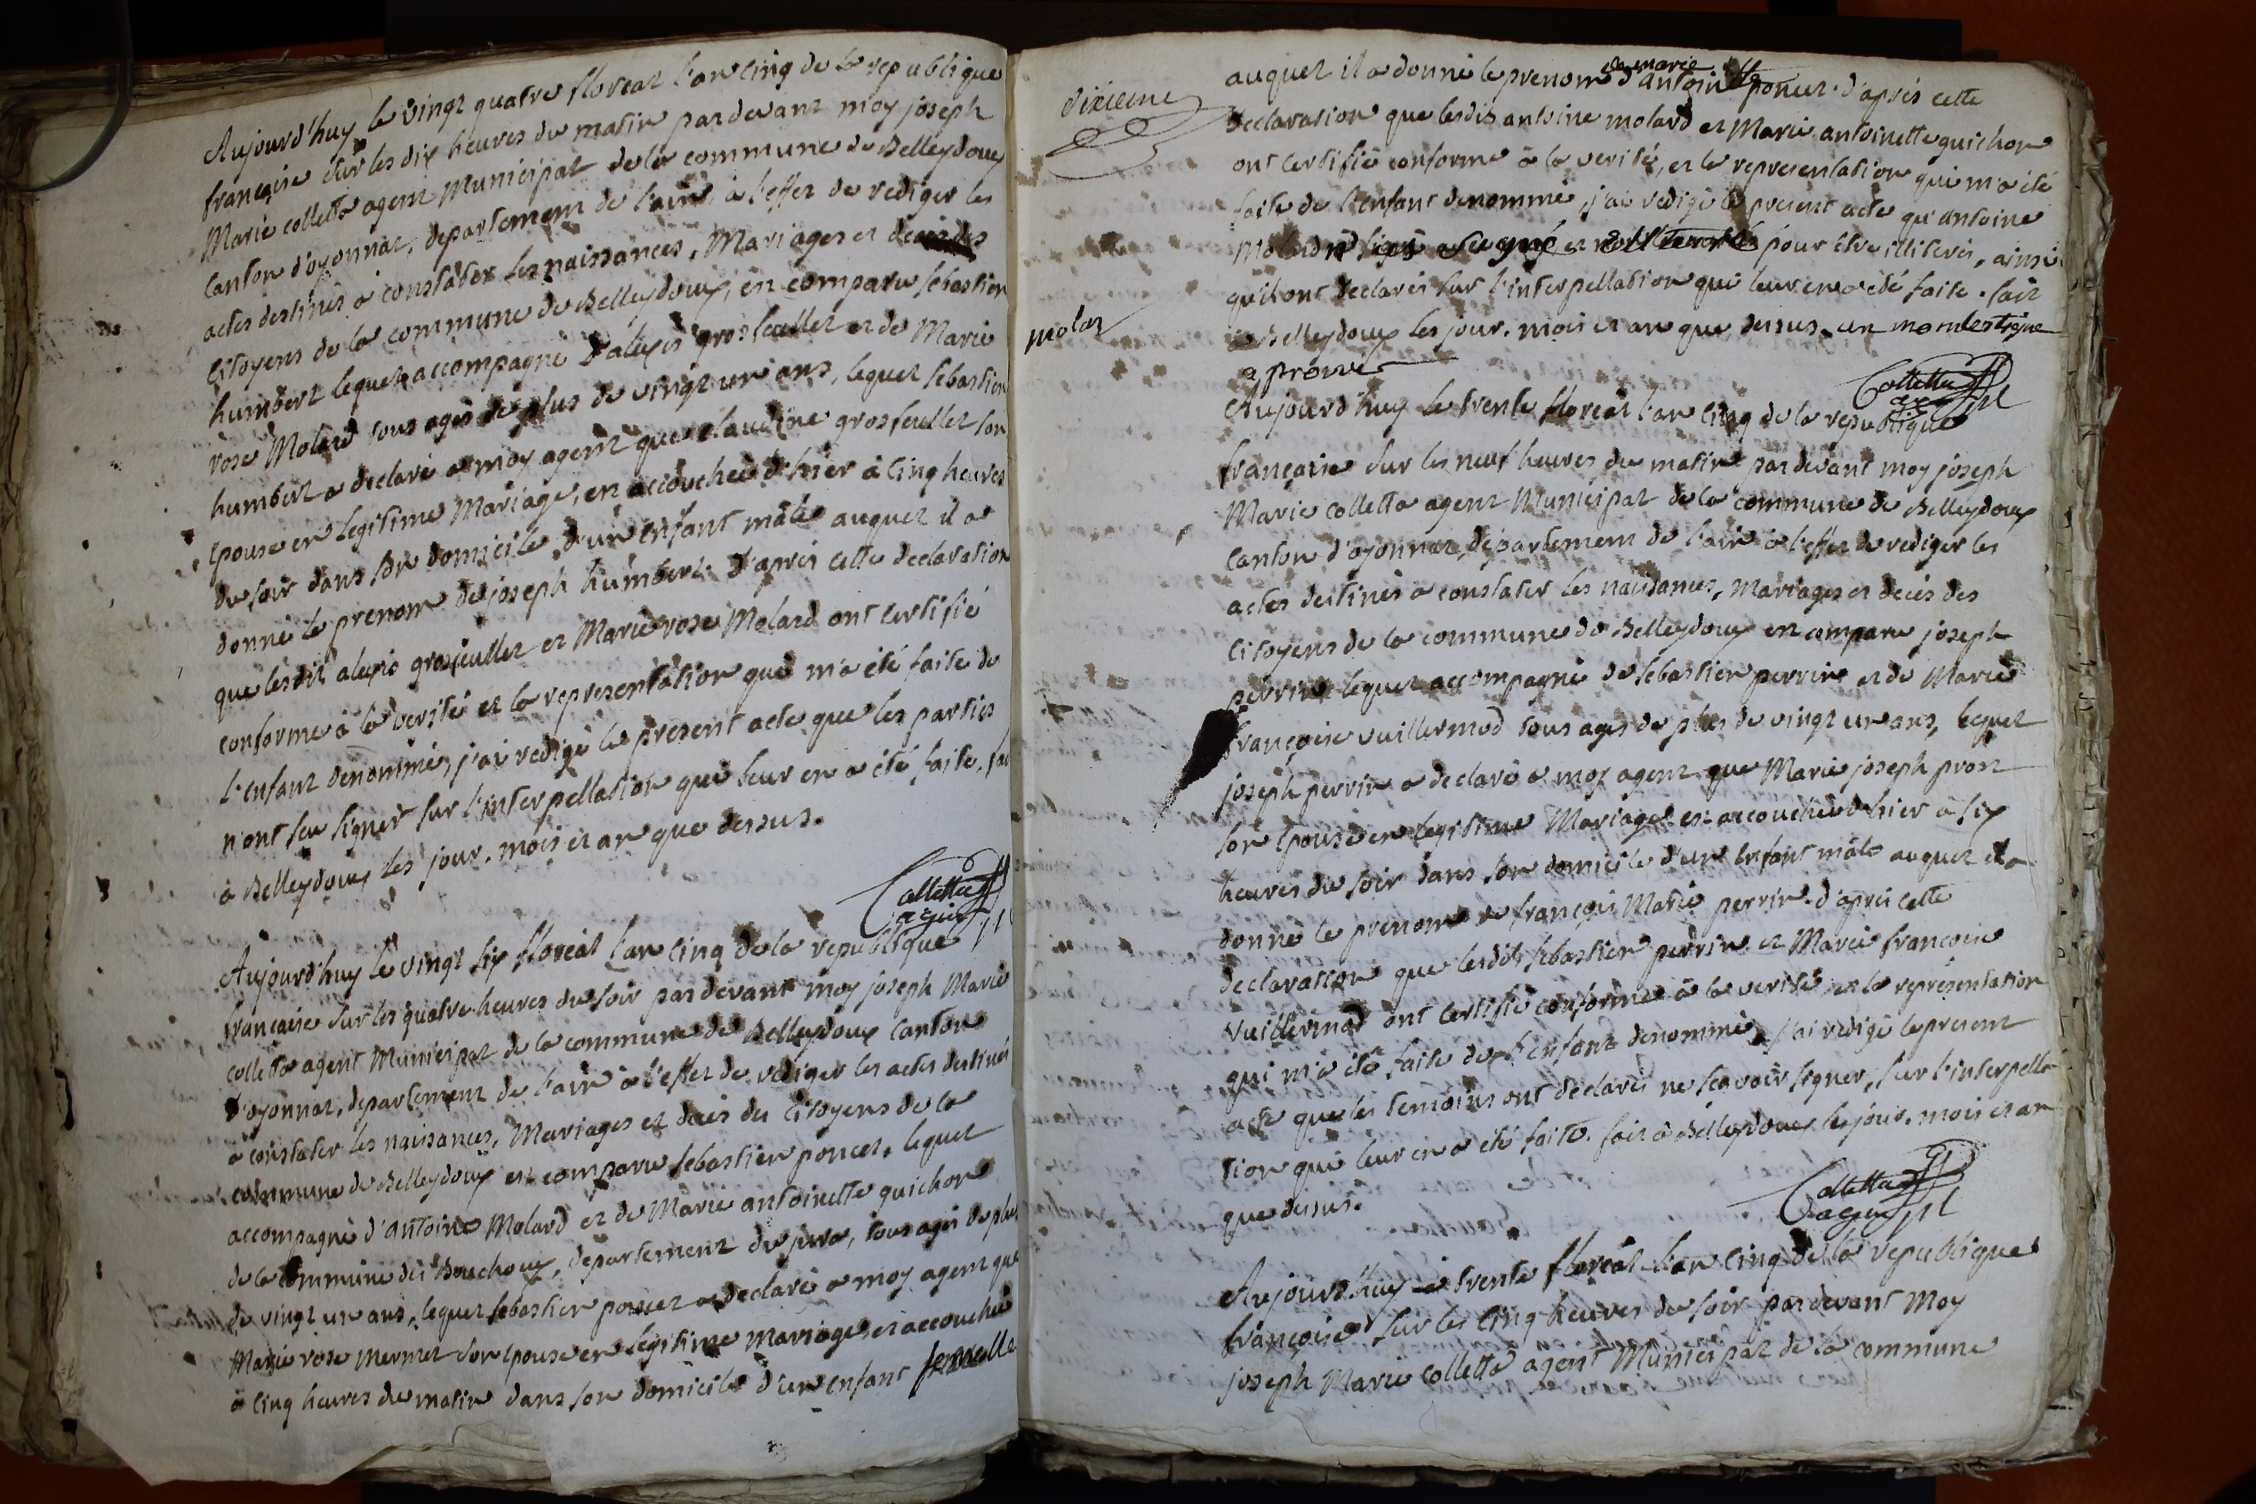 Aujourd'huy le vingt quatre floreal l'an cinq de la republique
françaisse sur les dix heures du matin par devant moy joseph
Marie colletta agent Municipal de la commune de Belleydoux
Canton d'oyonnax, departement de l'ain à l'effet de rediger les
actes destinés a constater les naissances, Mariages et deces des
Citoyens de la commune de Belleydoux, est comparu sebastien
humbert lequel accompagné d'alexis grosfeullet et de Marie
rose Molard tous agés de plus de vingt un ans, lequel sebastien
humbert a declaré a moy agent que claudine grosfeullet son
epouse en legitime Mariage, est accouchée d'hier à cinq heures
du soir dans son domicile, d'un enfant mâle auquel il a
donné le prenom de joseph humbert. D'après cette declaration
que lesdit alexis grosfeullet et Marie rose Molard ont certifié
conforme à la verité et la representation qui m'a été faite de
l'enfant denommé, j'ai redigé le present acte que les parties
n'ont seu signer sur l'interpellation qui leur en a été faite, fait
à Belleydoux les jour, mois et an que dessus.
Colletta
agent
Aujourd'huy le vingt six floreal l'an cinq de la republique
francaise sur les quatre heures du soir par devant moy joseph Marie
colletta agent Municipal de la commune de Belleydoux Canton
d'oyonnax, departement de l'ain à l'effet de rediger les actes destinés
a constater les naissances, Mariages et deces des Citoyens de la
commune de Belleydoux est comparu sebastien poncet, lequel
accompagné d'antoine Molard et de Marie antoinette guichon
de la commune des Bouchoux, departement du jura, tous agés de plus
de vingt un ans, lequel sebastien poncet a declaré a moy agent que
Marie rose mermet son epouse en legitime mariage est accouchée
a cinq heures du matin dans son domicile d'un enfant femelle
dixieme
auquel il a donné le prenom
de marie
d'antoinette poncet. d'après cette
declaration que lesdits antoine molard et Marie antoinette guichon
ont certifié conforme à la verité, et la representation qui m'a été
faite de l'enfant denommé, j'ai redigé le present acte qu'antoine
Molard pour être illiterés, ainsi
qu'ils ont declarés sur l'interpellation qui leur en a été faite. fait
à Belleydoux les jour, mois et an que dessus
molar
aprouvé
Colletta
agent
Aujourd'huy le trente floreal l'an cinq de la republique
françaisse sur les neuf heures du matin par devant moy joseph
Marie colletta agent Municipal de la commune de Belleydoux
Canton d'oyonnax, departement de l'ain à l'effet de rediger les
actes destinés a constater les naissances, Mariages et deces des
Citoyens de la commune de Belleydoux est comparu joseph
perrin lequel accompagné de sebastien perrin et de Marie
françoise vuillermod tous agés de plus de vingt un ans, lequel
joseph perrin a declaré a moy agent que Marie joseph prost
son epouse en legitime Mariage est accouchée d'hier à six
heures du soir dans son domicile d'un enfant mâle auquel il a
donné le prenom de françois Marie perrin. d'après cette
declaration que lesdits sebastien perrin et Marie francoise
vuillermod ont certifié conforme à la verité, et la representation
qui m'a été faite de l'enfant denommé, j'ai redigé le present
acte que les temoins ont declarés ne scavoir signer, sur l'interpella
tion qui leur en a été faite. fait à Belleydoux les jour, mois et an
que dessus.
Colletta
agent
Aujourd'huy trente floreal l'an cinq de la republique
françoise sur les cinq heures du soir par devant moy
joseph Marie colletta agent Municipal de la commune